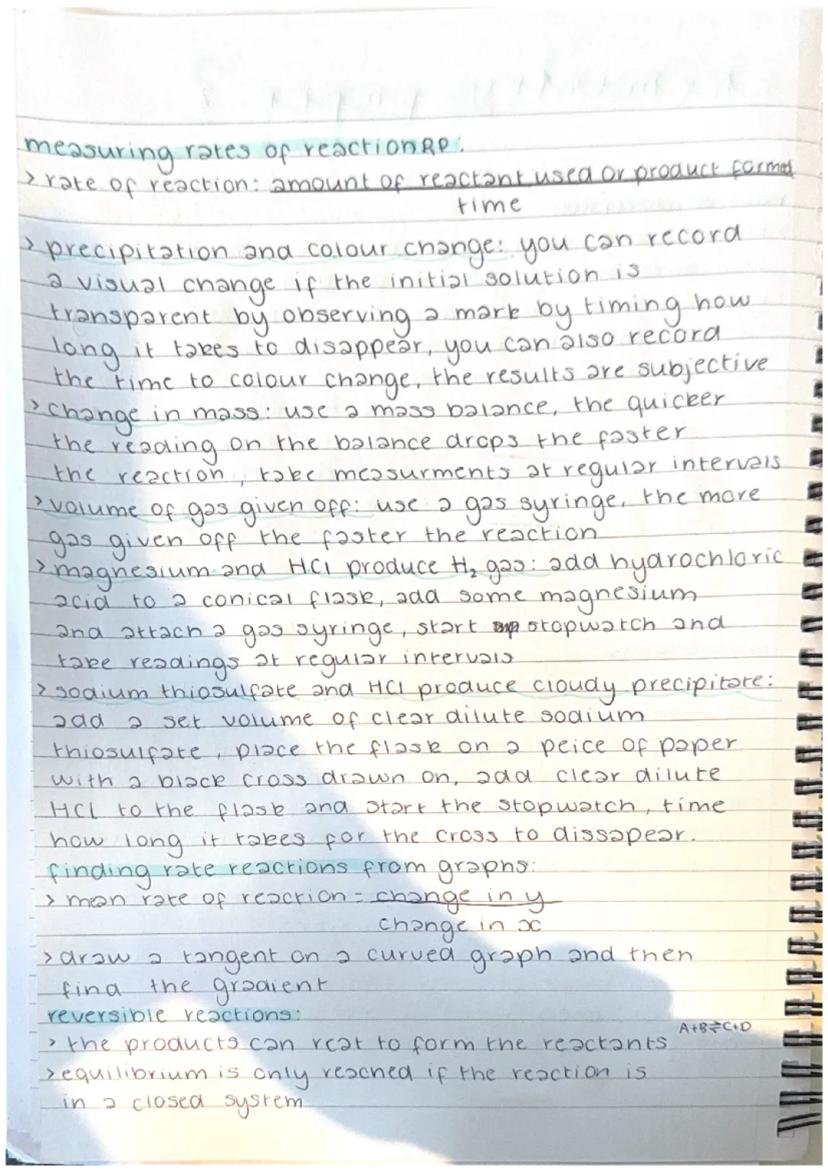 measuring rates of reaction RP:
> rate of reaction: amount of reactant used or product formed
time
> precipitation and colour change: you can record
a visual change if the initial solution is
transparent by observing a mark by timing how
long it takes to disappear, you can also record
the time to colour change, the results are subjective
> change in mass: use a mass balance, the quicker
the reading on the balance drops the faster
the reaction, take measurments at regular intervals
> volume of gas given off: use a gas syringe, the more
gas given off the faster the reaction
> magnesium and HCl produce H₂ gas: add hydrochloric
acid to a conical flask, add some magnesium
and attach a gas syringe, start stopwatch and
take readings at regular intervals
> sodium thiosulfate and HCl produce cloudy precipitate:
add a set volume of clear dilute sodium
thiosulfate, place the flask on a peice of paper
with a black cross drawn on, add clear dilute
HCL to the flask and start the stopwatch, time
how long it takes for the cross to dissapear.
finding rate reactions from graphs:
> mean rate of reaction = change in y
change in x
> draw a tangent on a curved graph and then
find the gradient
reversible reactions:
> the products can rcat to form the reactants A+B⇌C+D
> equilibrium is only reached if the reaction is
in a closed system